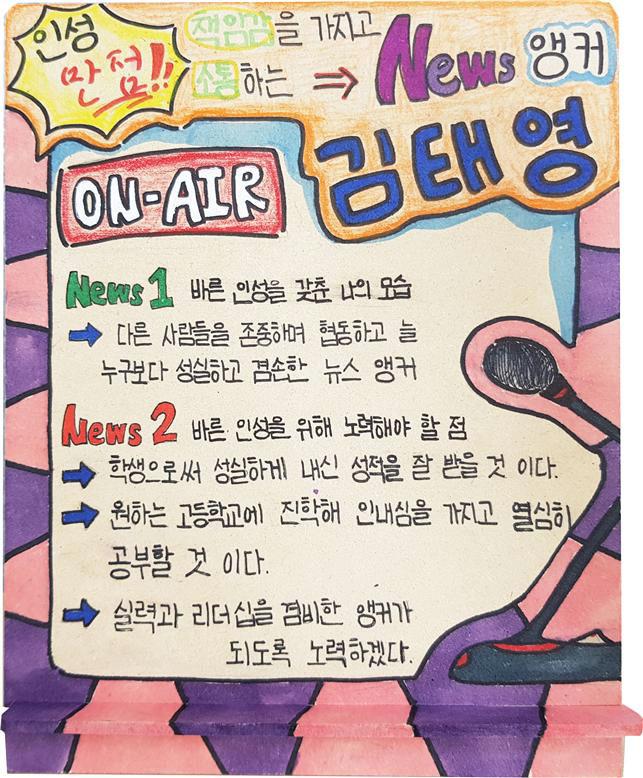 인성
만점!!
책임감을 가지고
소통하는 ⇒ News 앵커
김태영
ON-AIR
News 1 바른 인성을 갖춘 나의 모습
➡ 다른 사람들을 존중하며 협동하고 늘
누구보다 성실하고 겸손한 뉴스 앵커
News 2 바른 인성을 위해 노력해야 할 점
➡ 학생으로써 성실하게 내신 성적을 잘 받을 것 이다.
➡ 원하는 고등학교에 진학해 인내심을 가지고 열심히
공부할 것 이다.
➡ 실력과 리더십을 겸비한 앵커가
되도록 노력하겠다.